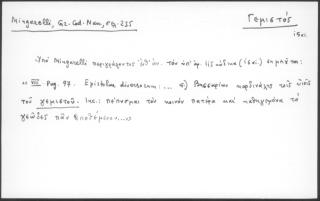 Mingarelli, Gr. Cod. Nan., pg. 235
Γεμιστός
15 αι.
Ὑπό Mingarelli περιγράφοντος τὸν ὑπ' ἀρ. 115 κώδικα (15 αι.) σημ
« VIII Pag. 97. Epistolae diversorum: ... ε) Βησσαρίων καρδινάλις τοῖς υἱοῖς
τοῦ γεμιστοῦ. Inc.: πέπυσμαι τὸν κοινὸν πατέρα καὶ καθηγεμόνα τὸ
γεῶδες πᾶν ἀποθέμενον...»